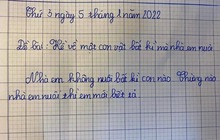 Thứ 3 ngày 5 tháng 1 năm 2022
Đề bài: Kể về một con vật bất kì mà nhà em nuôi.
Nhà em không nuôi bất kì con nào. Chừng nào
nhà em nuôi thì em mới biết tả